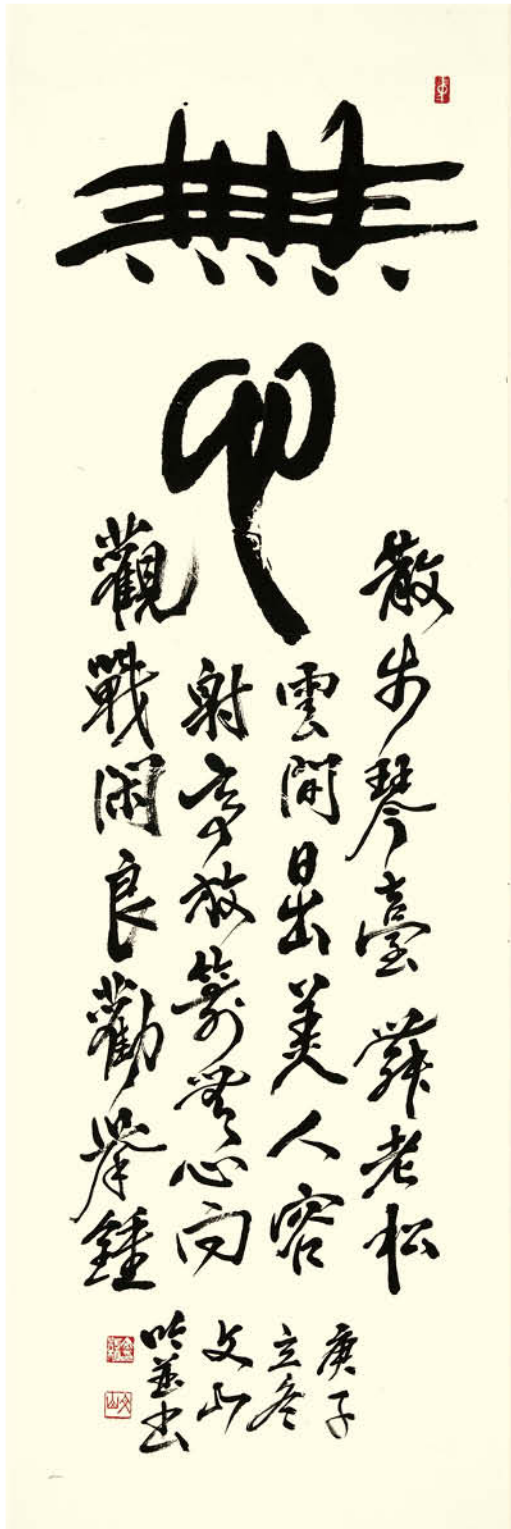 無
散步琴臺舞老松
雲間日出美人容
射亭放箭無心向
觀戰閑良勸擧鍾
庚子
立冬
文山
吟並書
文山